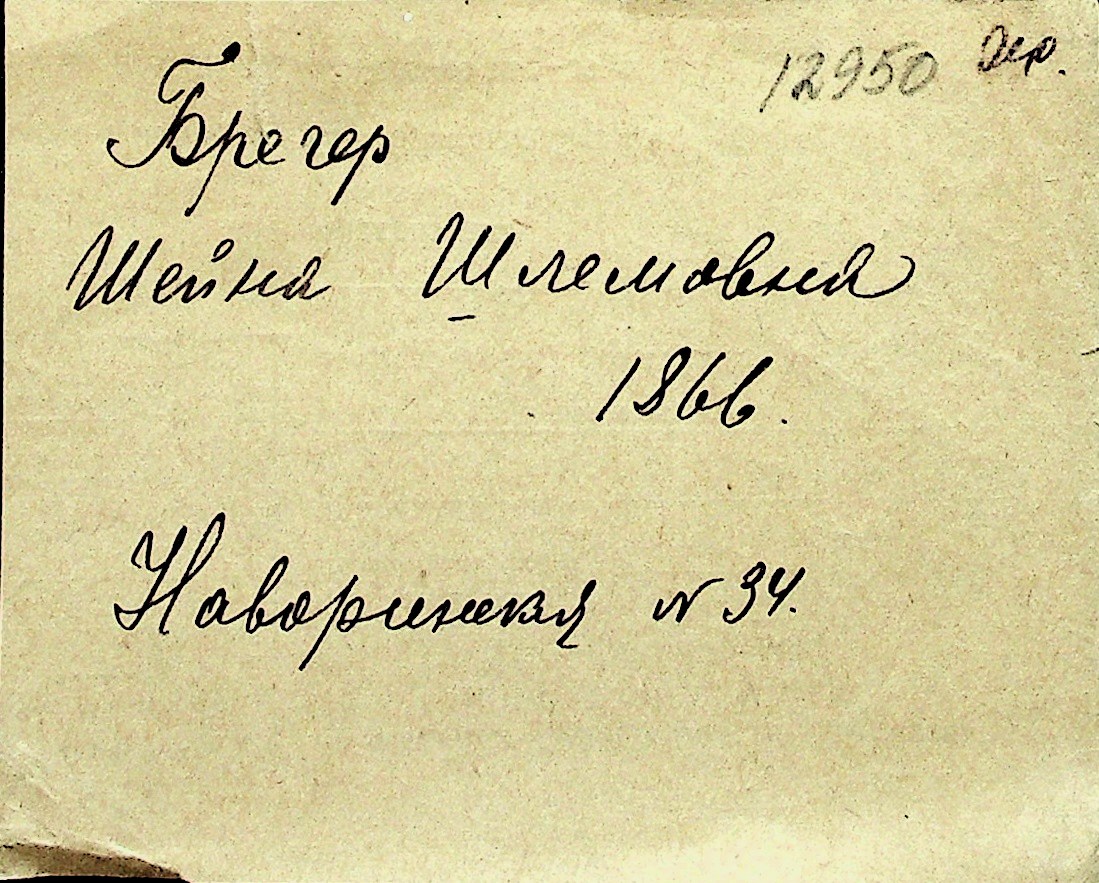 12950
Брегер
Шейна Шлемовна
1866.
Наваринская № 34.